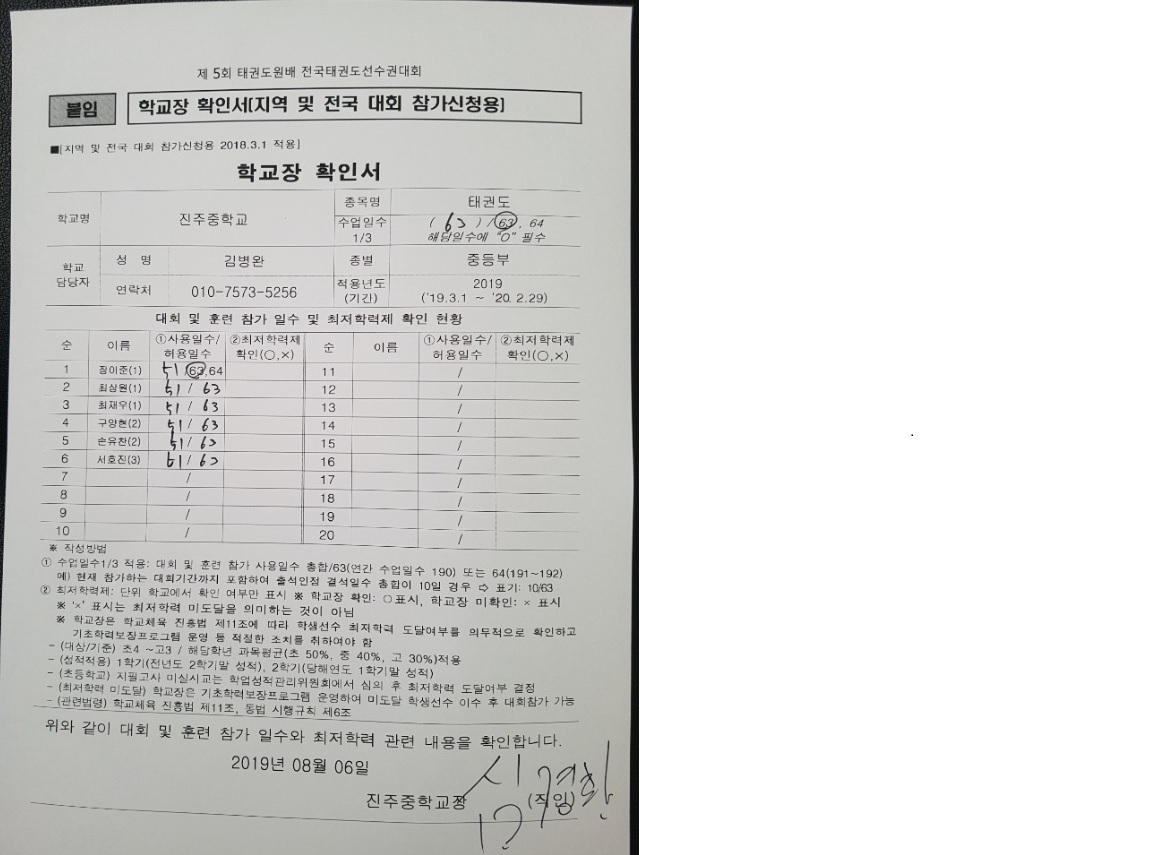 제 5회 태권도원배 전국태권도선수권대회
붙임 학교장 확인서(지역 및 전국 대회 참가신청용)
■[지역 및 전국 대회 참가신청용 2018.3.1 적용]
학교장 확인서
학교명 진주중학교 종목명 태권도
수업일수 1/3 ( 63 ) / 63, 64
해당일수에 "O" 필수
학교 담당자 성 명 김병완 종별 중등부
연락처 010-7573-5256 적용년도 (기간) 2019
('19.3.1 ~ '20.2.29)
대회 및 훈련 참가 일수 및 최저학력제 확인 현황
순 이름 ①사용일수/허용일수 ②최저학력제 확인(○,×) 순 이름 ①사용일수/허용일수 ②최저학력제 확인(○,×)
1 장이준(1) 51 /63,64 11 /
2 최상원(1) 51 / 63 12 /
3 최재우(1) 51 / 63 13 /
4 구양현(2) 51 / 63 14 /
5 손유찬(2) 51 / 63 15 /
6 서호진(3) 51 / 63 16 /
7 / 17 /
8 / 18 /
9 / 19 /
10 / 20 /
※ 작성방법
① 수업일수1/3 적용: 대회 및 훈련 참가 사용일수 총합/63(연간 수업일수 190) 또는 64(191~192)
예) 현재 참가하는 대회기간까지 포함하여 출석인정 결석일수 총합이 10일 경우 ⇨ 표기: 10/63
② 최저학력제: 단위 학교에서 확인 여부만 표시 ※ 학교장 확인: ○표시, 학교장 미확인: × 표시
※ '×' 표시는 최저학력 미도달을 의미하는 것이 아님
※ 학교장은 학교체육 진흥법 제11조에 따라 학생선수 최저학력 도달여부를 의무적으로 확인하고
기초학력보장프로그램 운영 등 적절한 조치를 취하여야 함
- (대상/기준) 초4 ~고3 / 해당학년 과목평균(초 50%, 중 40%, 고 30%)적용
- (성적적용) 1학기(전년도 2학기말 성적), 2학기(당해연도 1학기말 성적)
- (초등학교) 지필고사 미실시교는 학업성적관리위원회에서 심의 후 최저학력 도달여부 결정
- (최저학력 미도달) 학교장은 기초학력보장프로그램 운영하여 미도달 학생선수 이수 후 대회참가 가능
- (관련법령) 학교체육 진흥법 제11조, 동법 시행규칙 제6조
위와 같이 대회 및 훈련 참가 일수와 최저학력 관련 내용을 확인합니다.
2019년 08월 06일
진주중학교장 (직인)